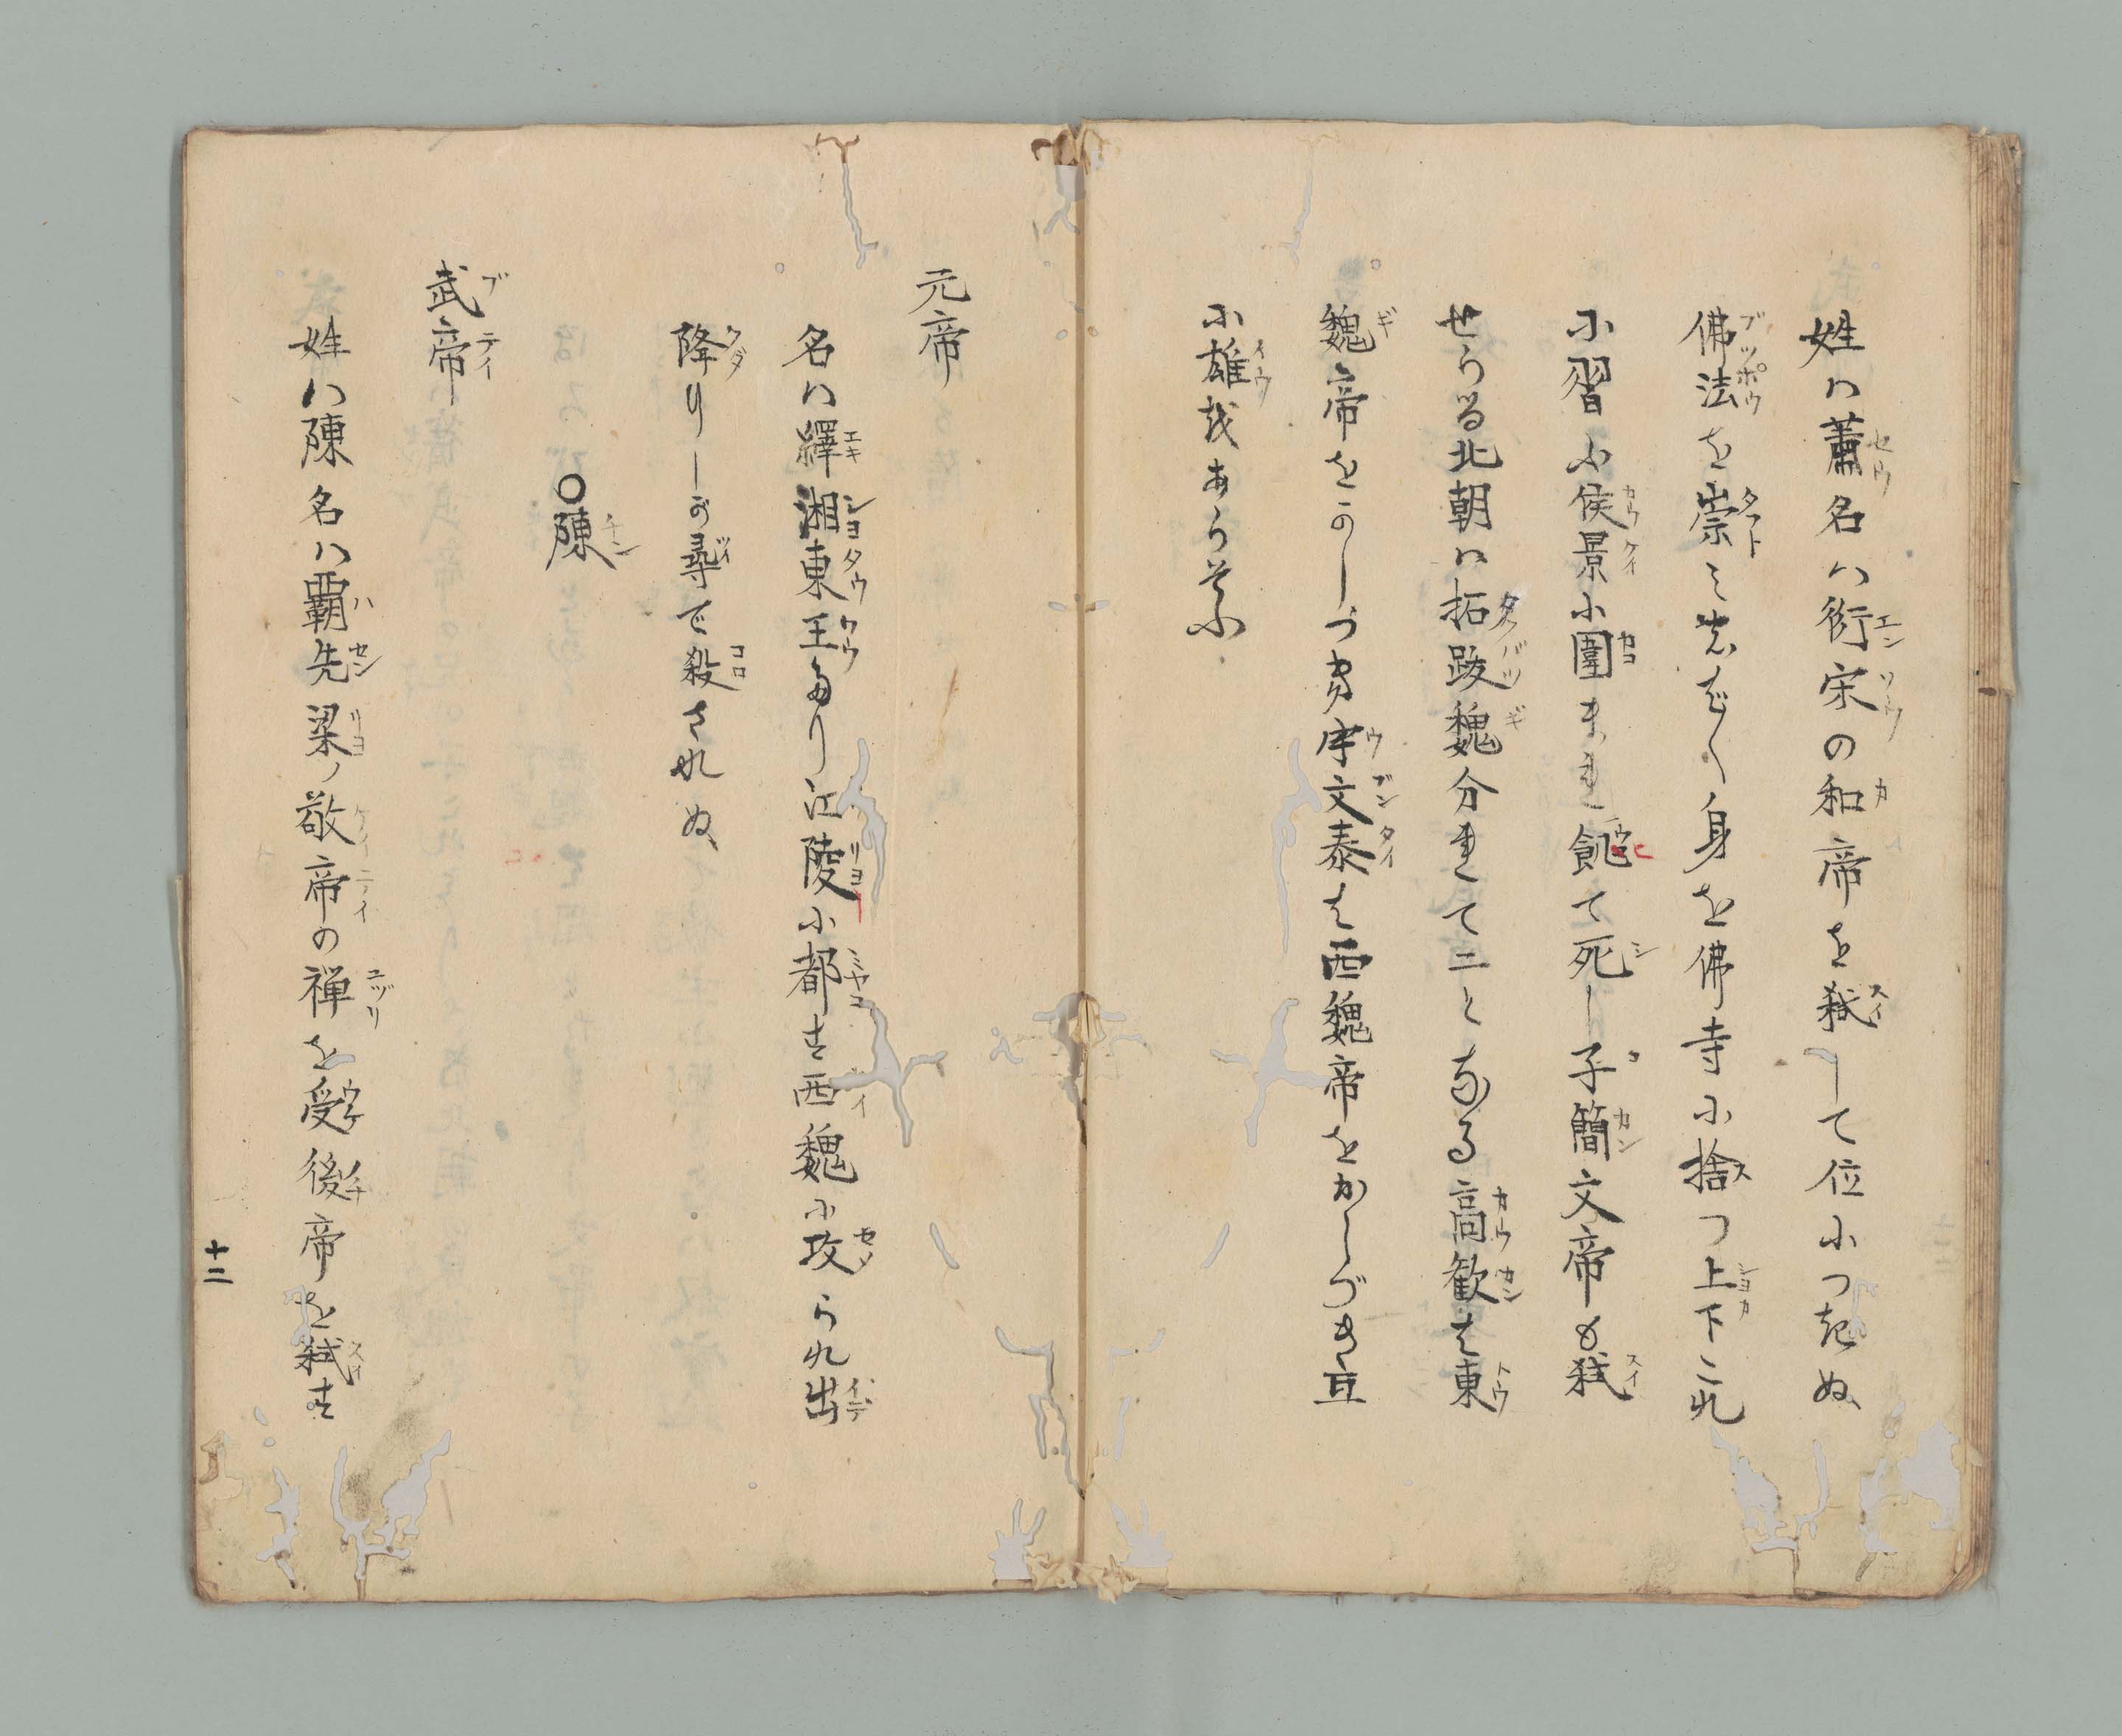 姓ハ蕭名ハ衍宋の和帝を弑して位につきぬ
佛法を崇ミ しば〳〵身を佛寺に捨つ上下これ
に習ふ侯景に圍まれ飢て死し子簡文帝も弑
せらる北朝ハ拓跋魏分れて二となる高歓は東
魏帝をかしづき宇文泰は西魏帝をかしづき互
に雄をあらそふ
元帝
名ハ繹湘東王たり江陵に都す西魏に攻られ出
降りしが尋で殺されぬ
〇陳
武帝
姓ハ陳名ハ覇先梁ノ敬帝の禅を受後帝を弑す
十二